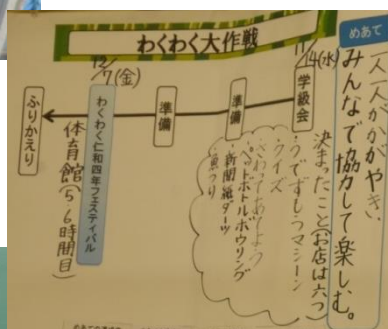 わくわく大作戦
めあて
一人一人かがやき
みんなで協力して楽しむ。
11/14(水)
学級会
決まったこと(お店は六つ)
・うでずもうマシーン
・クイズ
・さわってあてよう
・ペットボトルボウリング
・新聞紙ダーツ
・魚つり
準備
準備
12/7(金)
わくわく仁和四年フェスティバル
体育館(5・6時間目)
ふりかえり